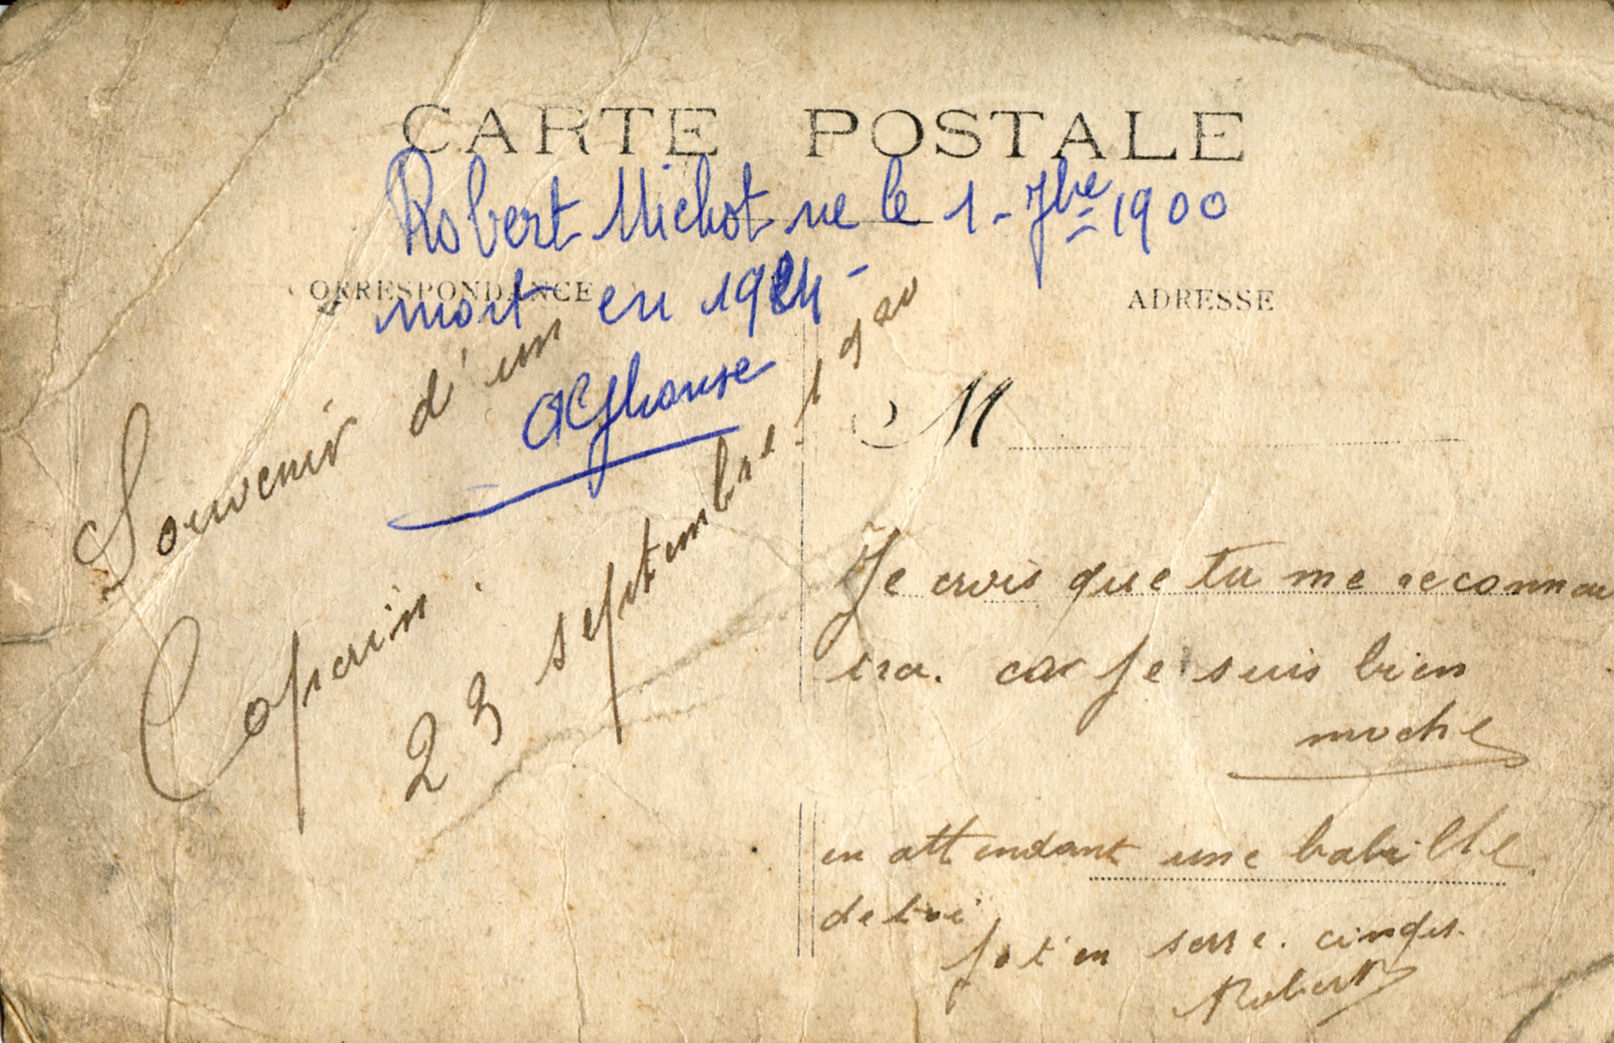 CARTE POSTALE
Robert Michot ne le 1-7bre 1900
mort en 1924-
ORRESPONDANCE
ADRESSE
Alphonse
Souvenir d'un
Copain.
23 septembre 1920
M
Je crois que tu me reconnai
tra. car je suis bien
moche
en attendant une babille
de toi
je t'en serre. cinqs.
Robert